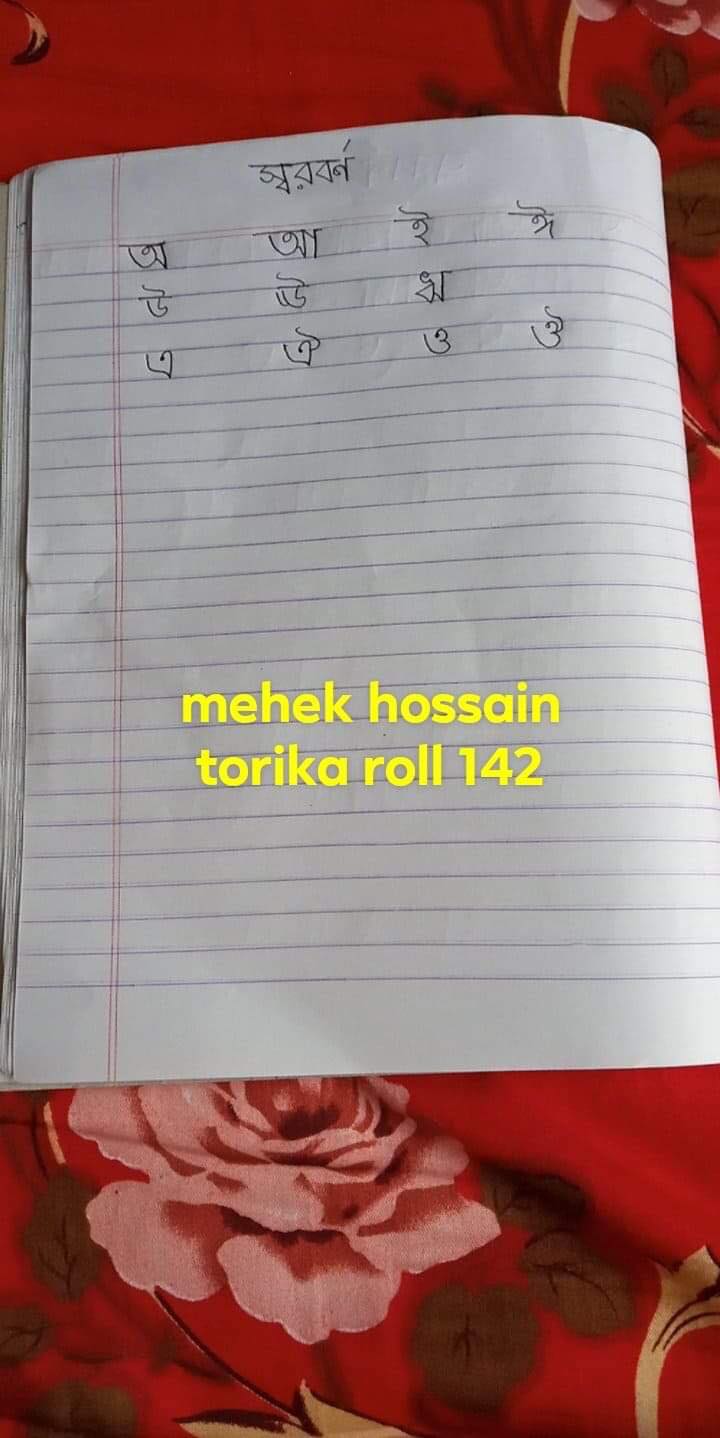 স্বরবর্ন
অ আ ই ঈ
উ ঊ ঋ
এ ঐ ও ঔ
mehek hossain
torika roll 142